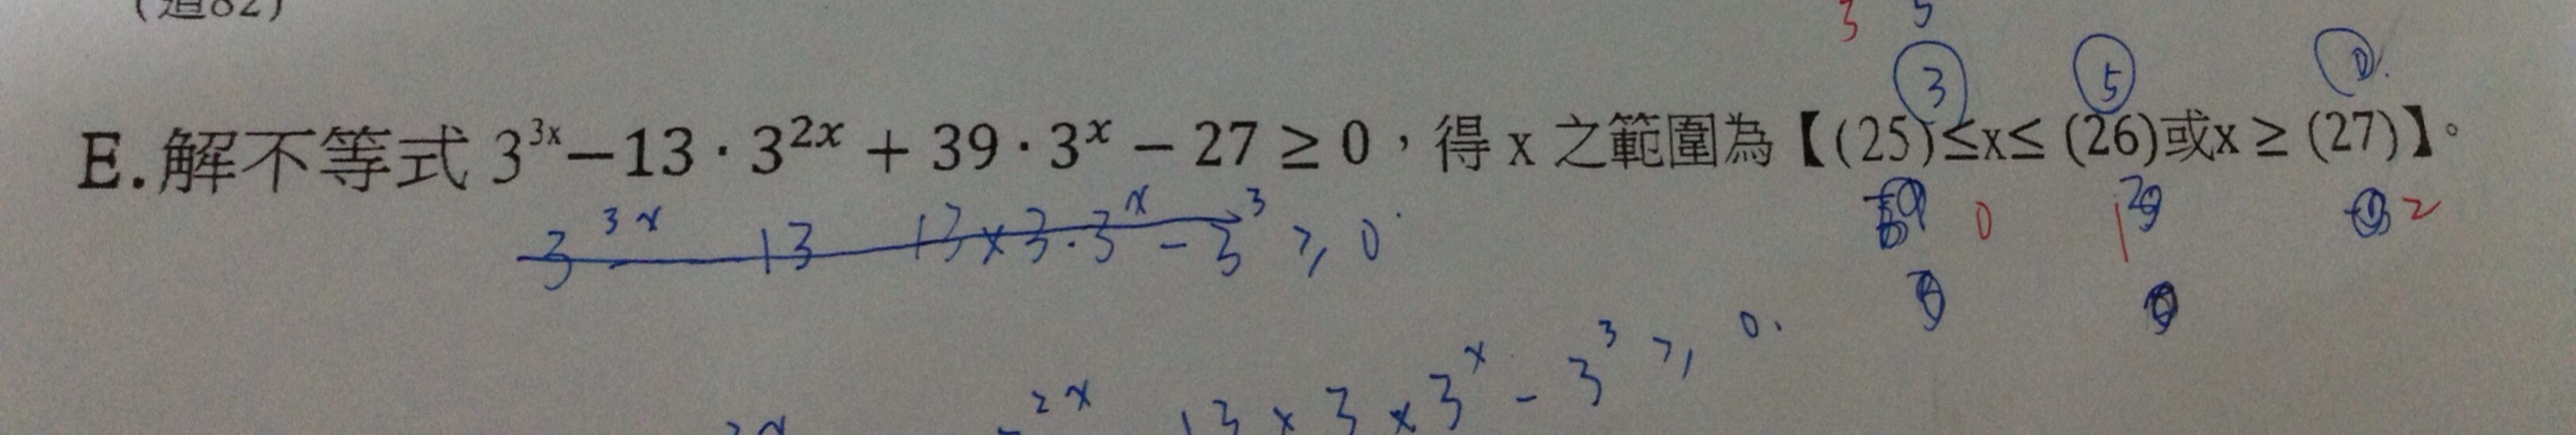 3 5
3 5 0.
E.解不等式 3^{3x}−13·3^{2x}+39·3^x−27≥0，得 x 之範圍為【(25)≤x≤(26)或x≥(27)】。
0 1 2
3^{3x} 13 13×3·3^x − 3^3 ≥ 0
2x 13×3×3^x − 3^3 ≥ 0.